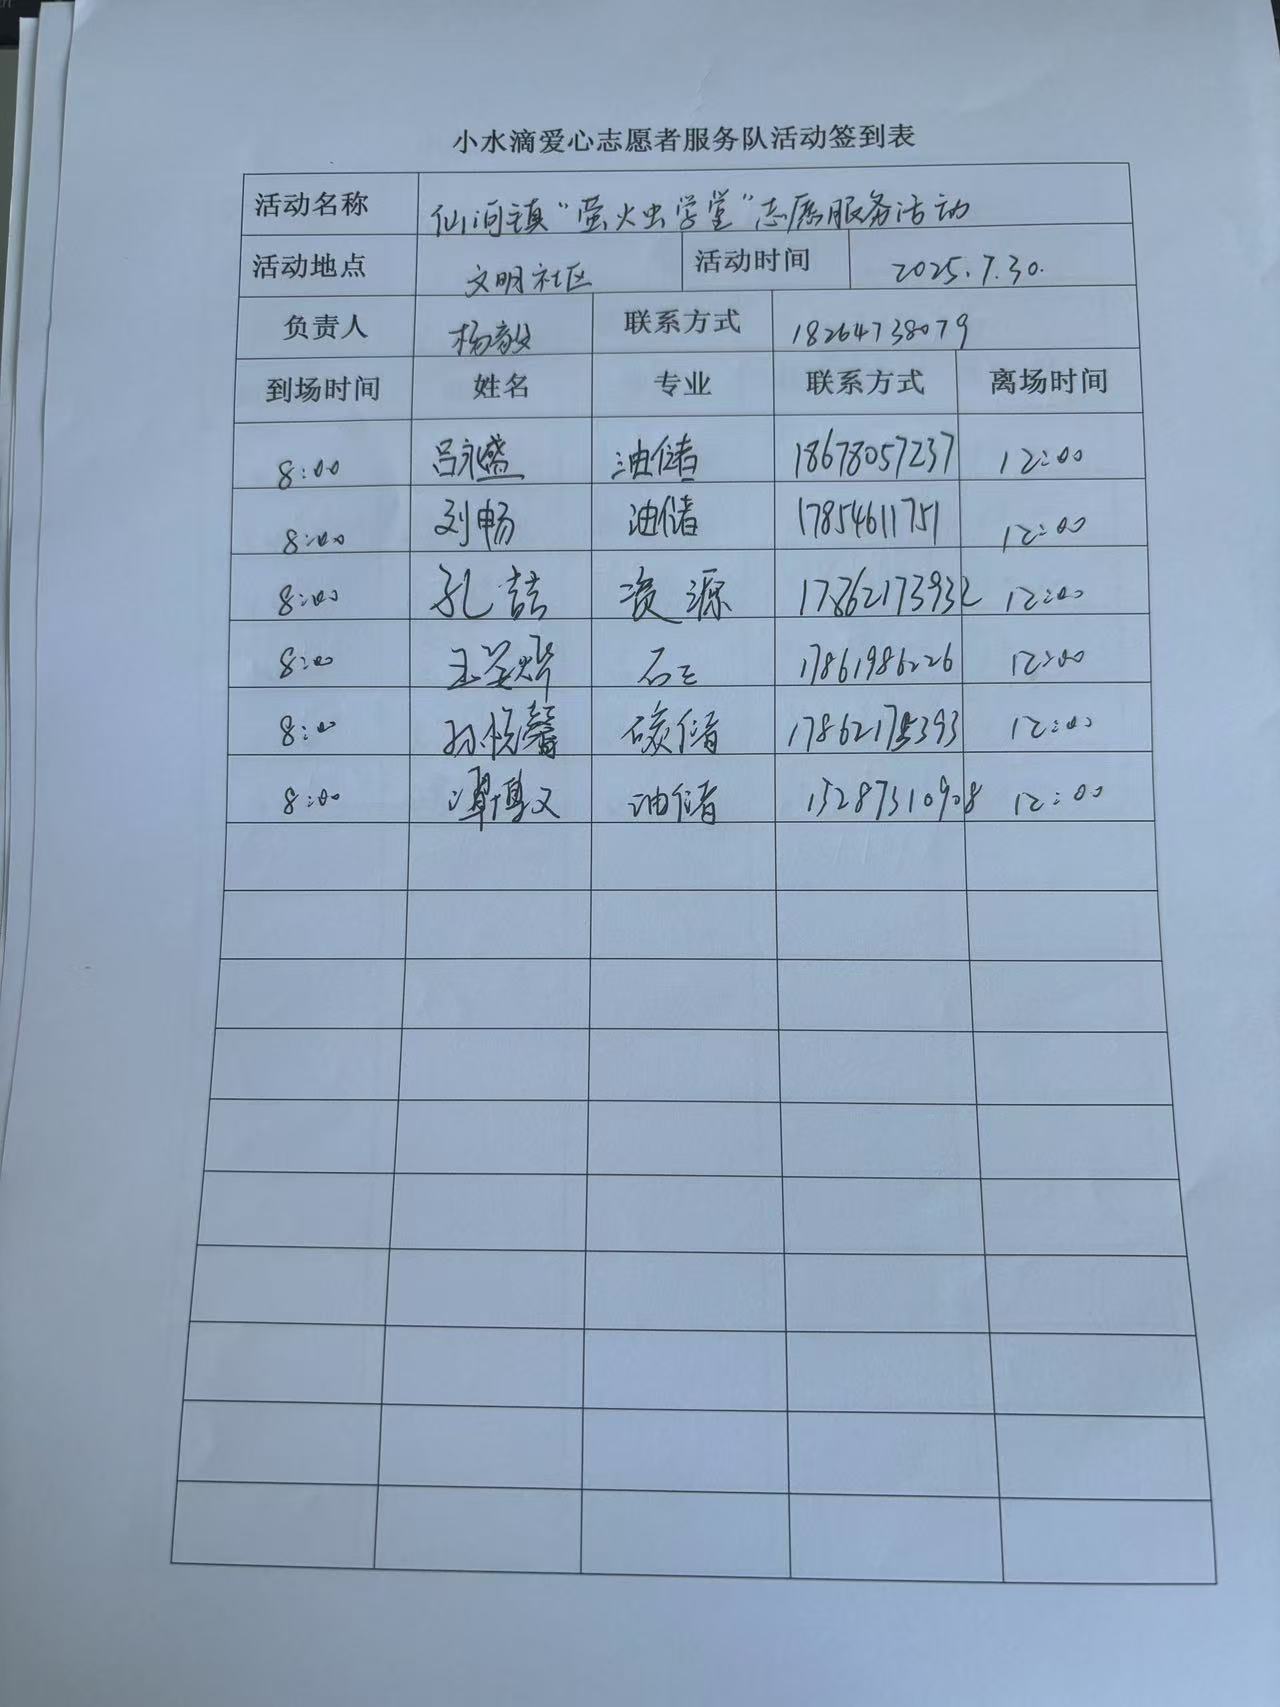 小水滴爱心志愿者服务队活动签到表
活动名称 仙河镇“萤火虫学堂”志愿服务活动
活动地点 文明社区 活动时间 2025.7.30.
负责人 杨敏 联系方式 18264738079
到场时间 姓名 专业 联系方式 离场时间
8:00 吕永盛 油储 18678057237 12:00
8:00 刘畅 油储 17854611751 12:00
8:00 孔喆 资源 17862173932 12:00
8:00 石工 17861986226 12:00
8:00 孙悦馨 碳储 12:00
8:00 油储 15287310908 12:00